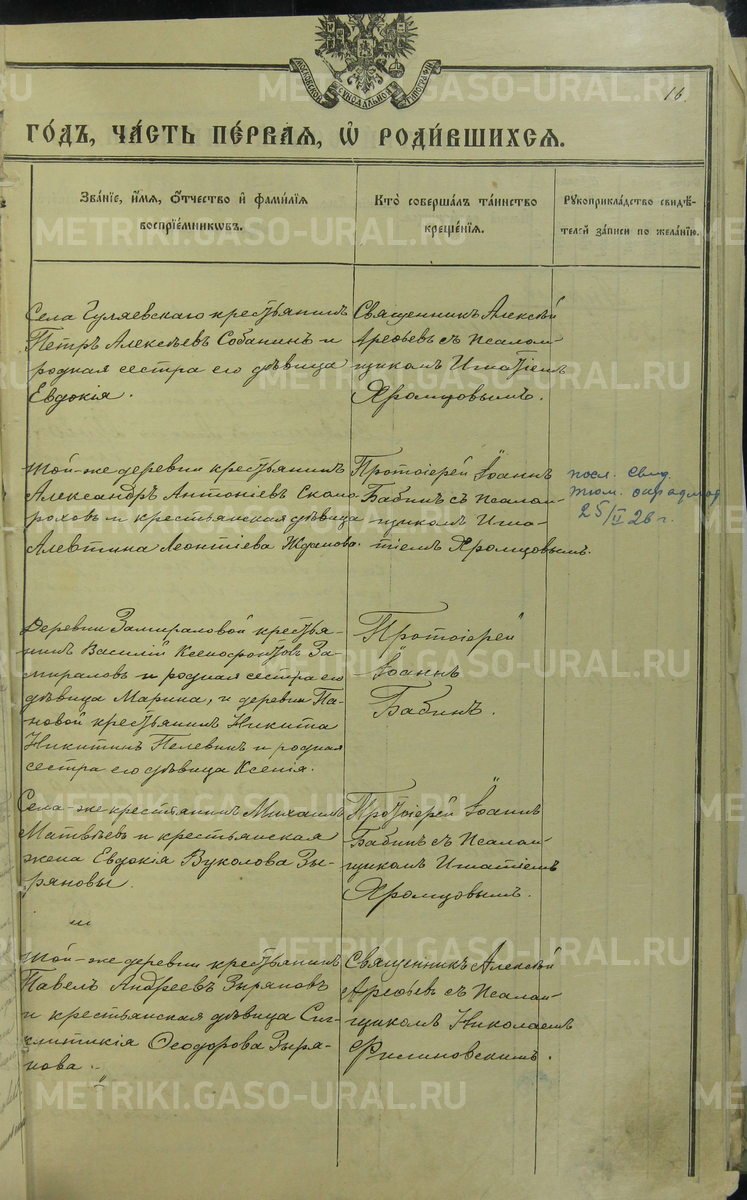 МОСКОВСКОЙ СѴНОДАЛЬНОЙ ТИПОГРАФІИ
16.
ГОДЪ, ЧАСТЬ ПЕРВАЯ, Ѡ РОДИВШИХСЯ.
Званіе, имя, отчество и фамилія
воспріемниковъ.
Кто совершалъ таинство
крещенія.
Рукоприкладство свидѣ-
телей записи по желанію.
Села Гуляевскаго крестьянинъ
Петръ Алексѣевъ Собанинъ и
родная сестра его дѣвица
Евдокія.
Священникъ Алексѣй
Арефьевъ съ Псалом-
щикомъ Игнатіемъ
Хромцовымъ.
Той-же деревни крестьянинъ
Александръ Антоніевъ Скомо-
роховъ и крестьянская дѣвица
Алевтина Леонтіева Жданова.
Протоіерей Іоаннъ
Бабинъ съ Псалом-
щикомъ Игна-
тіемъ Хромцовымъ.
посл. свид.
тюм. окр адмод
25/II 26 г.
Деревни Замираловой крестья-
нинъ Василій Ксенофонтовъ За-
мираловъ и родная сестра его
дѣвица Марина, и деревни Па-
новой крестьянинъ Никита
Никитинъ Пелевинъ и родная
сестра его дѣвица Ксенія.
Протоіерей
Іоаннъ
Бабинъ.
Села-же крестьянинъ Михаилъ
Матвѣевъ и крестьянская
жена Евдокія Вуколова Зы-
ряновы.
Протоіерей Іоаннъ
Бабинъ съ Псалом-
щикомъ Игнатіемъ
Хромцовымъ.
Той-же деревни крестьянинъ
Павелъ Андреевъ Зыряновъ
и крестьянская дѣвица Син-
клитикія Ѳеодорова Зыря-
нова.
Священникъ Алексѣй
Арефьевъ съ Псалом-
щикомъ Николаемъ
Филиновскимъ.
METRIKI.GASO-URAL.RU